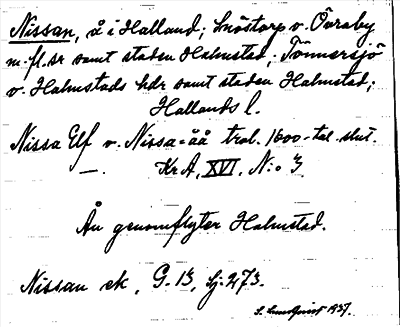 Nissan, å i Halland; Snöstorp v. Övraby
m. fl. sr samt staden Halmstad; Tönnersjö
o. Halmstads hdr samt staden Halmstad;
Hallands l.
Nissa Elf v. Nissa-åå trol. 1600-tal. slut.
—. KrA, XVI, N:o 3.
Ån genomflyter Halmstad.
Nissan ek, G. 13, sj: 273.
S. Lundquist 1937.